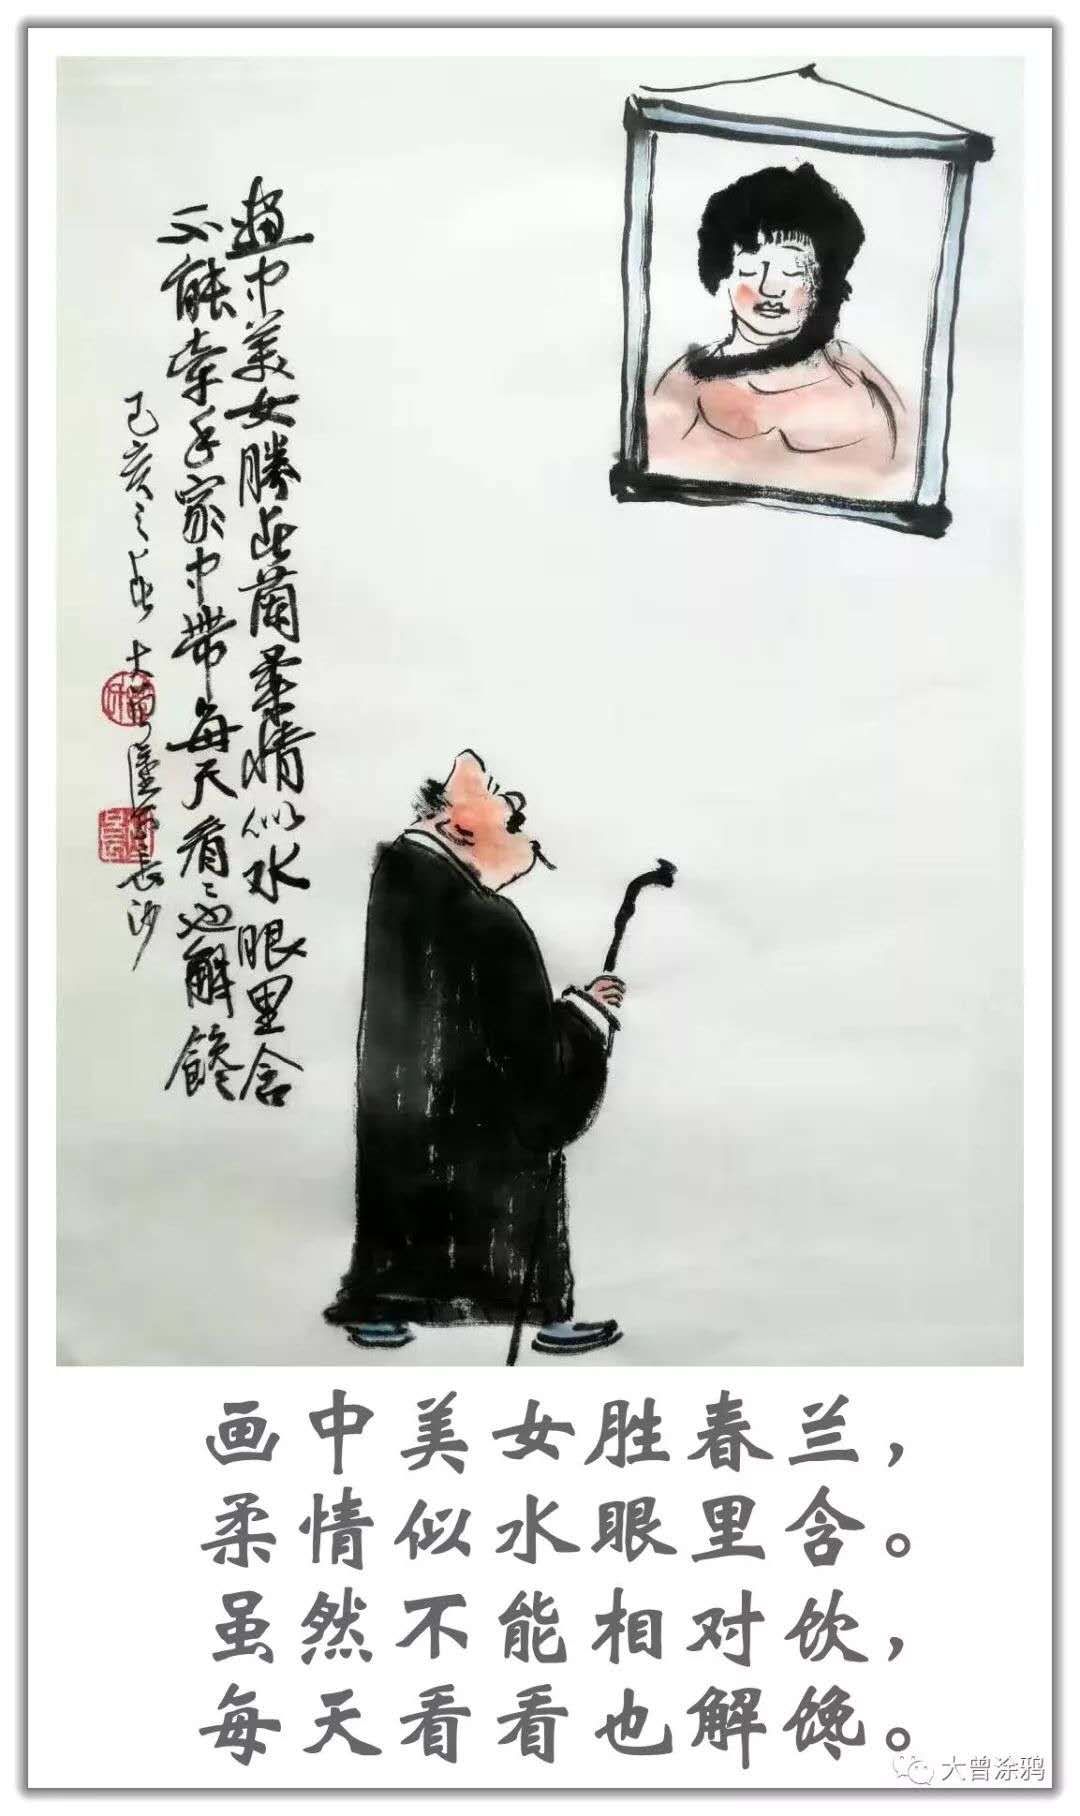 画中美女勝春蘭柔情似水眼里含
不能牵手家中带每天看〻也解馋
己亥之春大曾塗于長沙
画中美女胜春兰，
柔情似水眼里含。
虽然不能相对饮，
每天看看也解馋。
大曾涂鸦